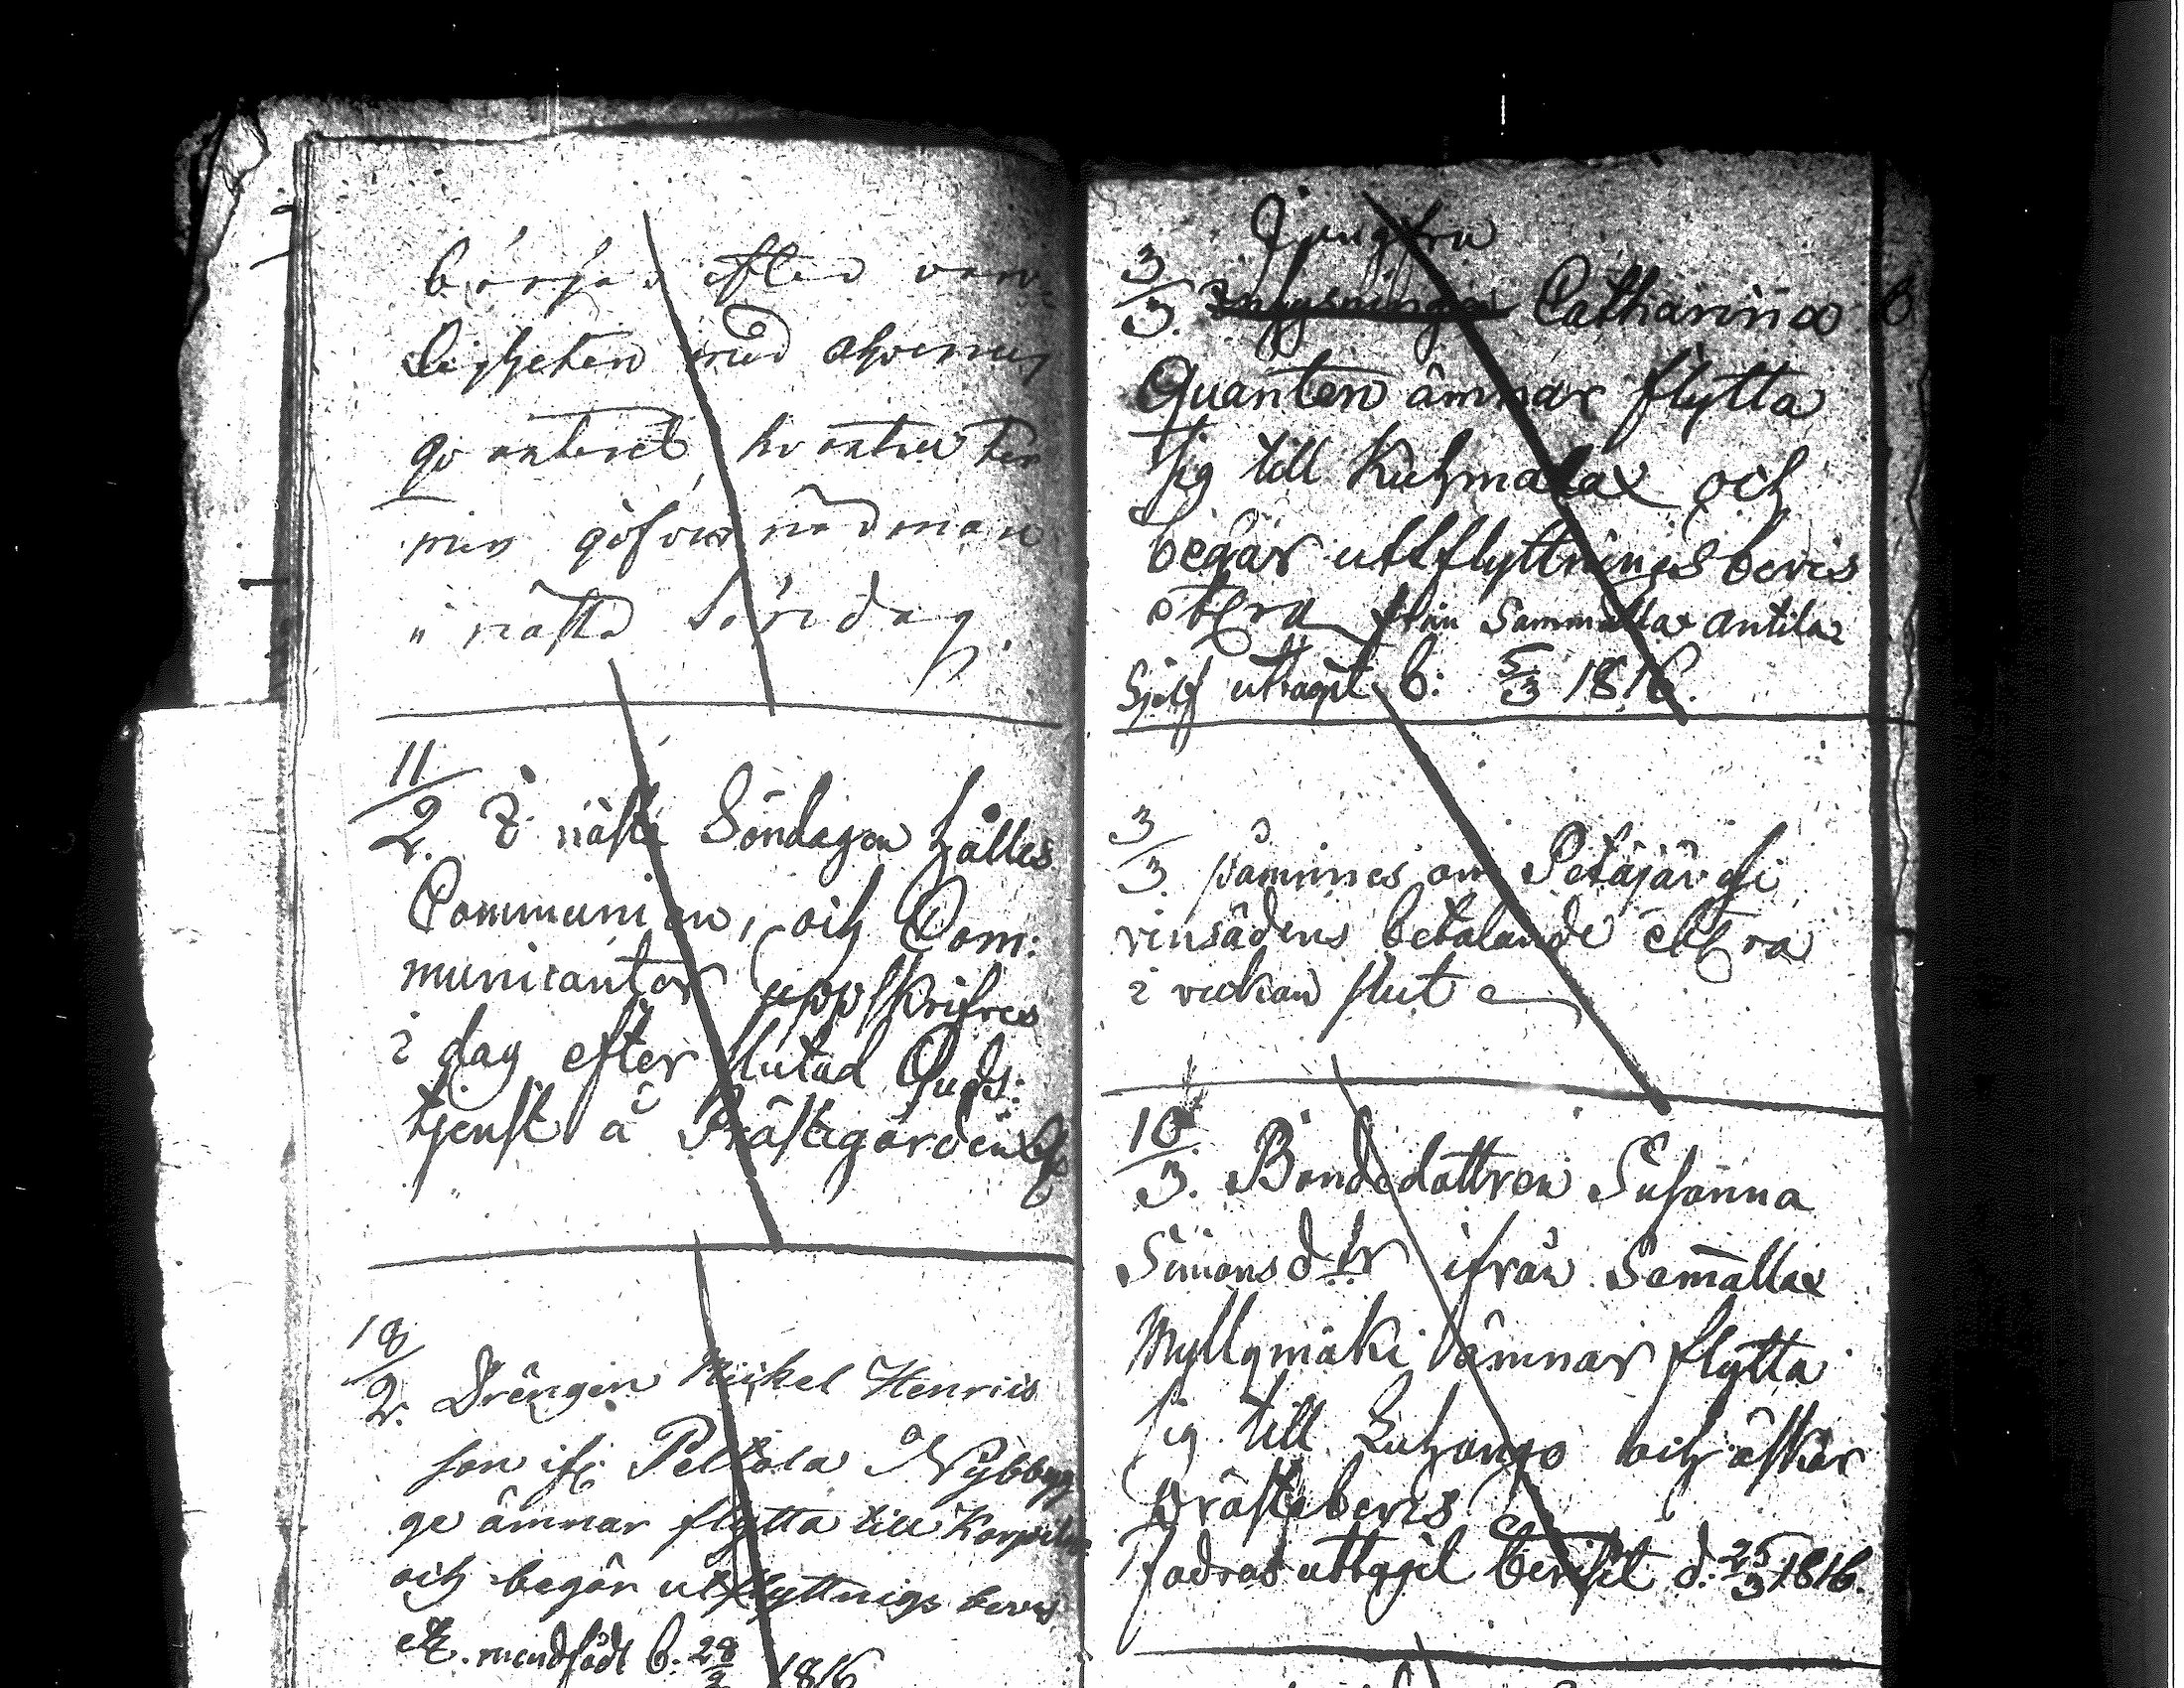 börjas efter van
ligheten med
qvarteret
min
i nästa söndag.
11/2. I nästa Söndagen hålles
Communion, och Com:
municanter uppskrifves
i dag efter slutad Guds:
tjenst å Prästegården
18/2. Drängen Mickel Henrics
son ifr. Peltola Nybbyg
ge ämnar flytta till Korpilax
och begär utflyttnigs bevis
etc. b. 28/2 1816
Jungfru
3/3. Catharina
Quanten ämnar flytta
sig till Kuhmalax och
begär uttflyttnings bevis
etc från Sammallax Antila
Sjelf uttagit b: 5/3 1816.
3/3. påmines om Petäjävesi
betalande
i veckan slut
10/3. Bondedottren Susanna
Simonsdtr ifrån Samallax
Myllymäki ämnar flytta
sig till Luhango och äskar
prästebevis
Fadren uttagit beviset d: 25/3 1816.